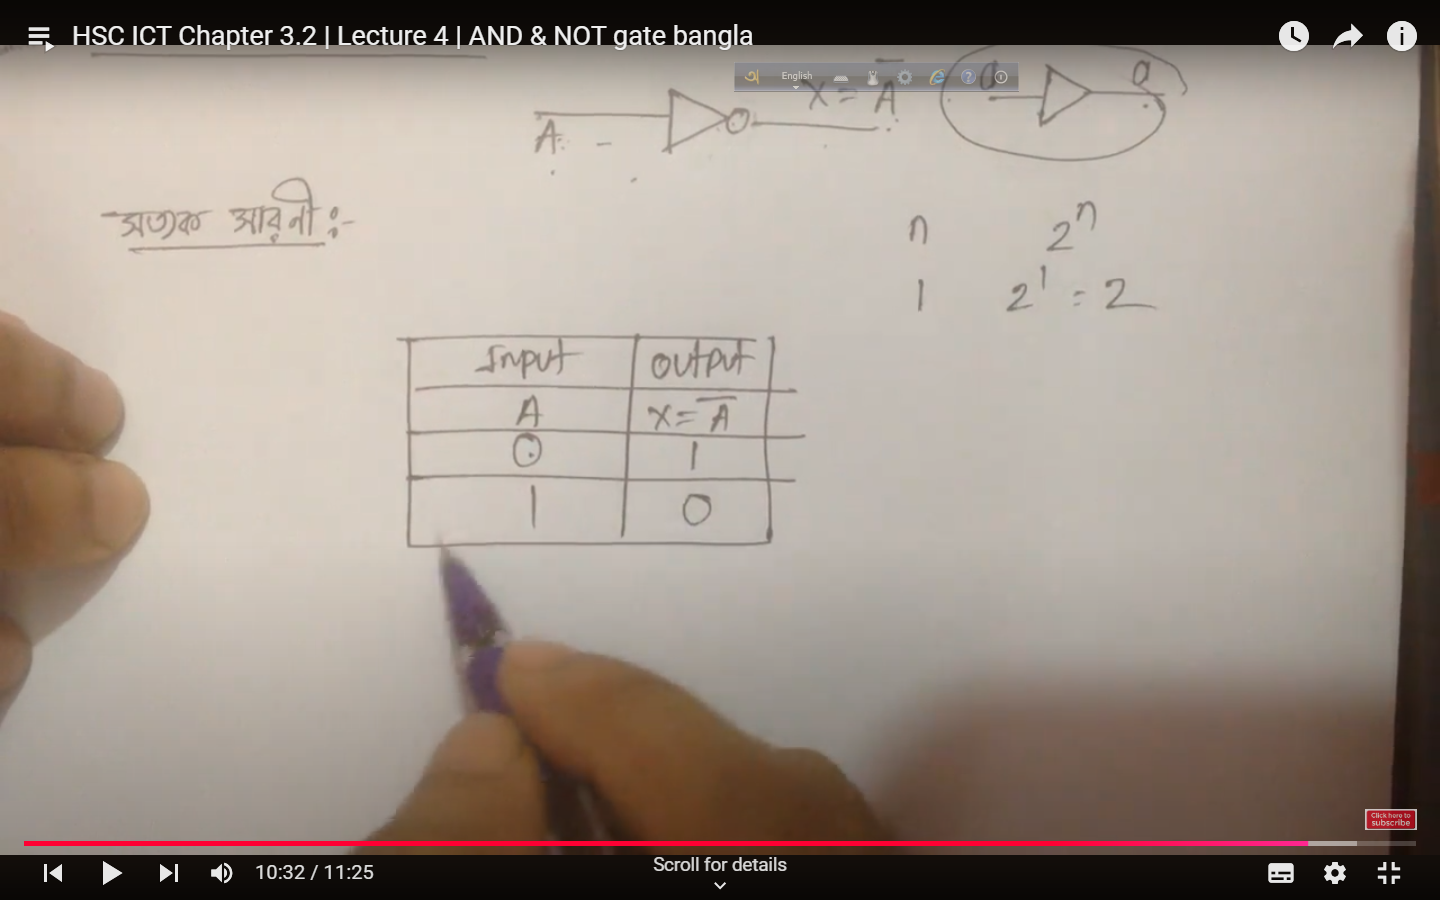 HSC ICT Chapter 3.2 | Lecture 4 | AND & NOT gate bangla
অ English
A x = A̅
0 0
সত্যক সারণী :-
n 2ⁿ
1 2¹ = 2
Input Output
A x = A̅
0 1
1 0
Click here to
subscribe
10:32 / 11:25
Scroll for details